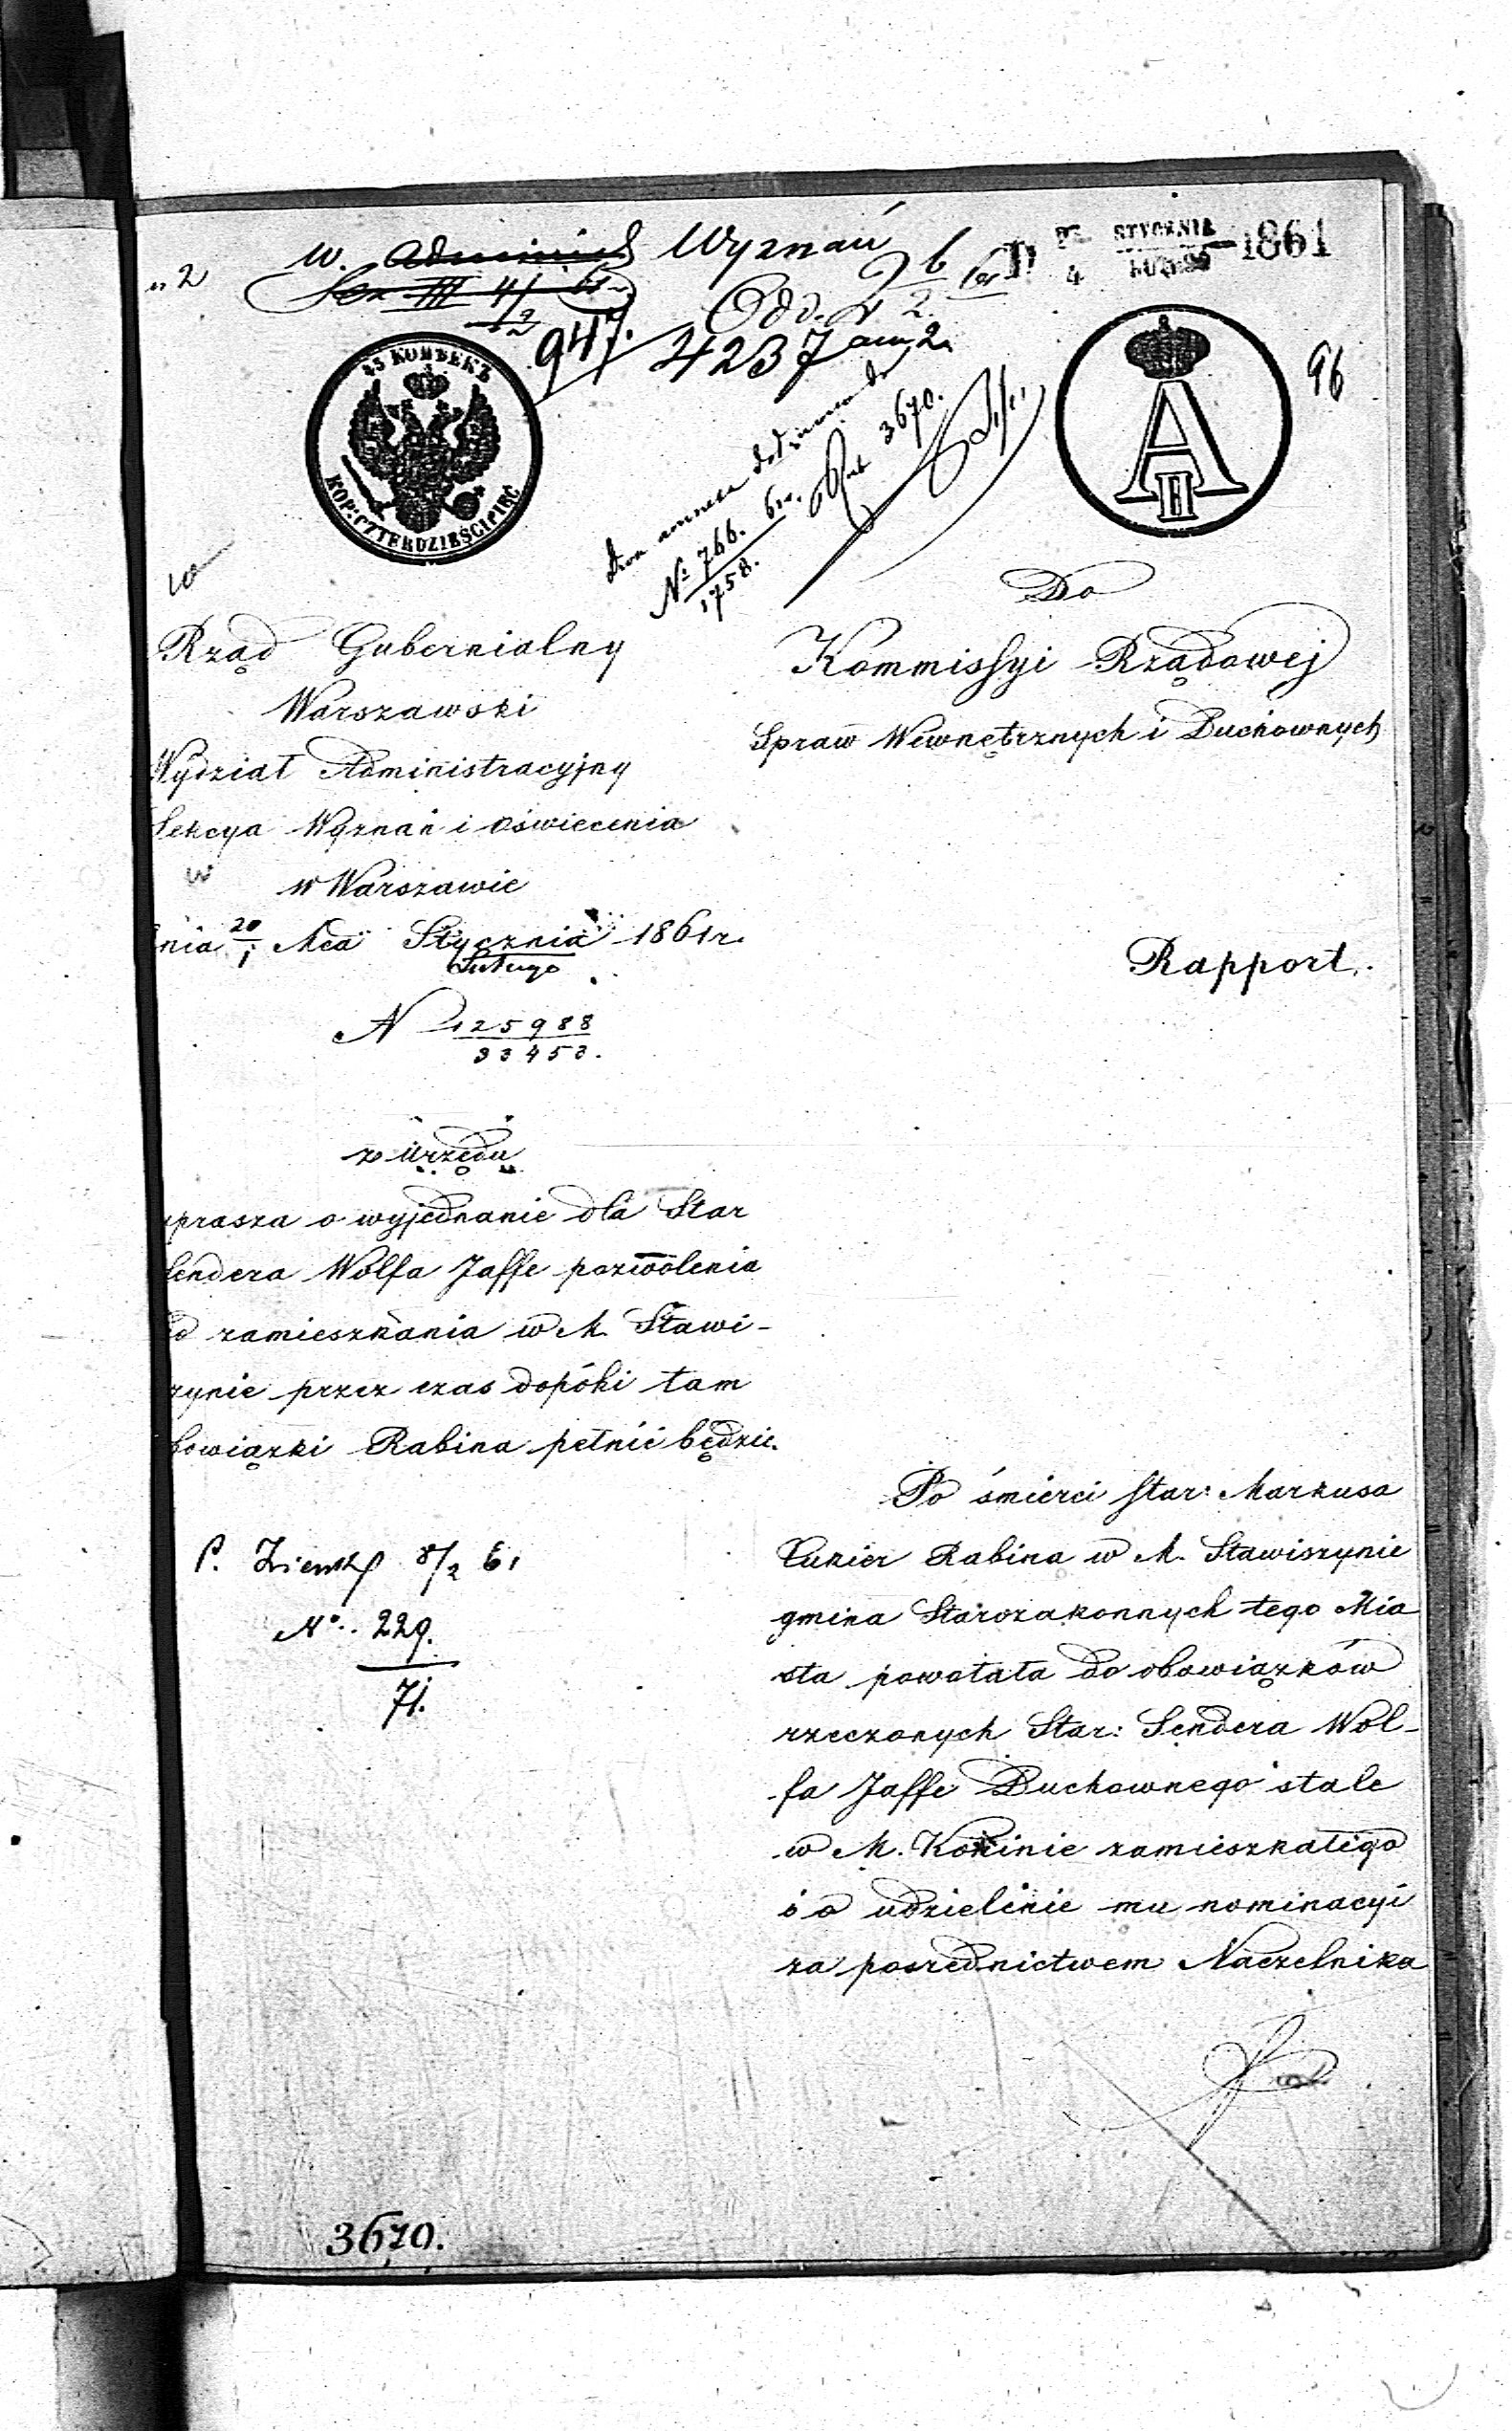 W. Wyznań
STYCZNIA 1861
4
947.
4237
96
45 КОПѢЕКЪ
KOP: CZTERDZIEŚCI PIĘĆ
A II
№ 766.
1758.
3670.
Do
Rząd Gubernialny
Warszawski
Wydział Administracyjny
Sekcya Wyznań i Oświecenia
w Warszawie
nia 20/1 Mca Stycznia 1861 r.
Lutego
N 125988
33453.
z Urzędu
uprasza o wyjednanie dla Star
Sendera Wolfa Jaffe pozwolenia
do zamieszkania w M. Stawi-
zynie przez czas dopóki tam
bowiązki Rabina pełnić będzie.
8/2 61
No. 229.
71.
3670.
Kommissyi Rządowej
Spraw Wewnętrznych i Duchownych
Rapport.
Po śmierci Star: Markusa
Cukier Rabina w M. Stawiszynie
gmina Starozakonnych tego Mia
sta powołała do obowiązków
rzeczonych Star: Sendera Wol-
fa Jaffe Duchownego stale
w M. Koninie zamieszkałego
i o udzielenie mu nominacyi
za pośrednictwem Naczelnika